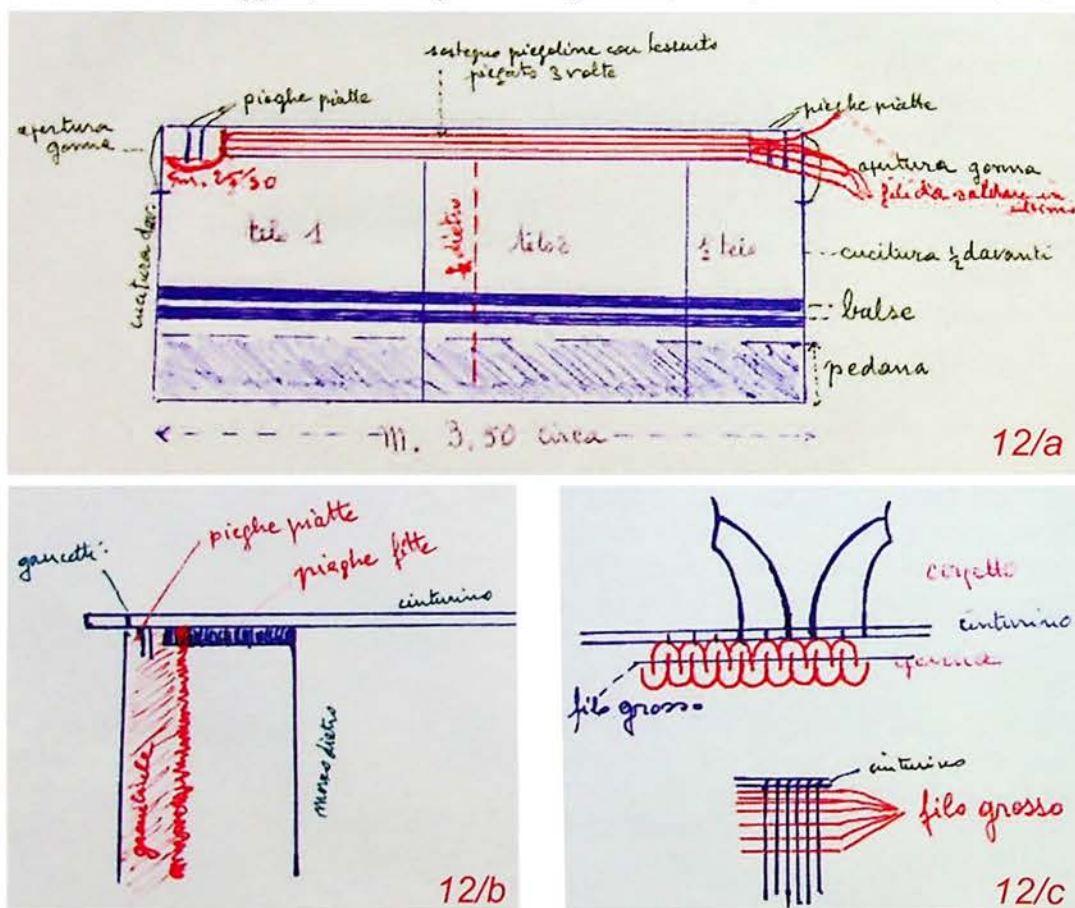 sostegno piegoline con tessuto
piegato 3 volte
pieghe piatte
pieghe piatte
apertura
gonna
apertura gonna
fili da saldare in
ultimo
cm. 25/30
cucitura dav.
telo 1
½ dietro
telo 2
½ telo
cucitura ½ davanti
balse
pedana
m. 3,50 circa
12/a
gancetti
pieghe piatte
pieghe fitte
cinturino
grembiule
mezzo dietro
12/b
corpetto
cinturino
gonna
filo grosso
cinturino
filo grosso
12/c